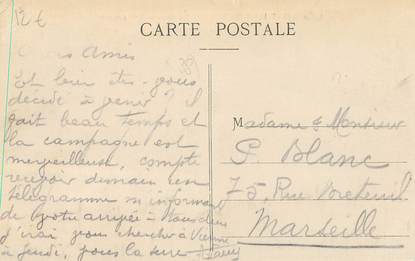 12 €
CARTE POSTALE
Chers Amis
Et bien êtes-vous
décidé à venir ? Il
fait beau temps et
la campagne est
merveilleuse, compte
recevoir demain un
télégramme m'informant
de votre arrivée à
j'irai vous cherche à Vienne
à jeudi, vous la serre
Madame & Monsieur
P. Blanc
75, Rue Breteuil
Marseille